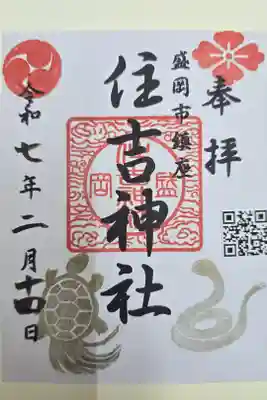 奉拝
盛岡市鎮座
住吉神社
令和七年二月十四日
盛岡